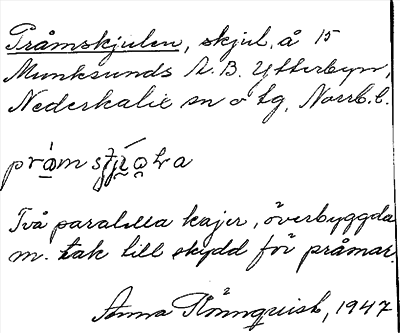 Pråmskjulen, skjul, å 15
Munksunds A.B. Ytterbyn,
Nederkalix sn o tg, Norrb. l.
Två paralella kajer, överbyggda
m. tak till skydd för pråmar.
Anna Rönnquist, 1947